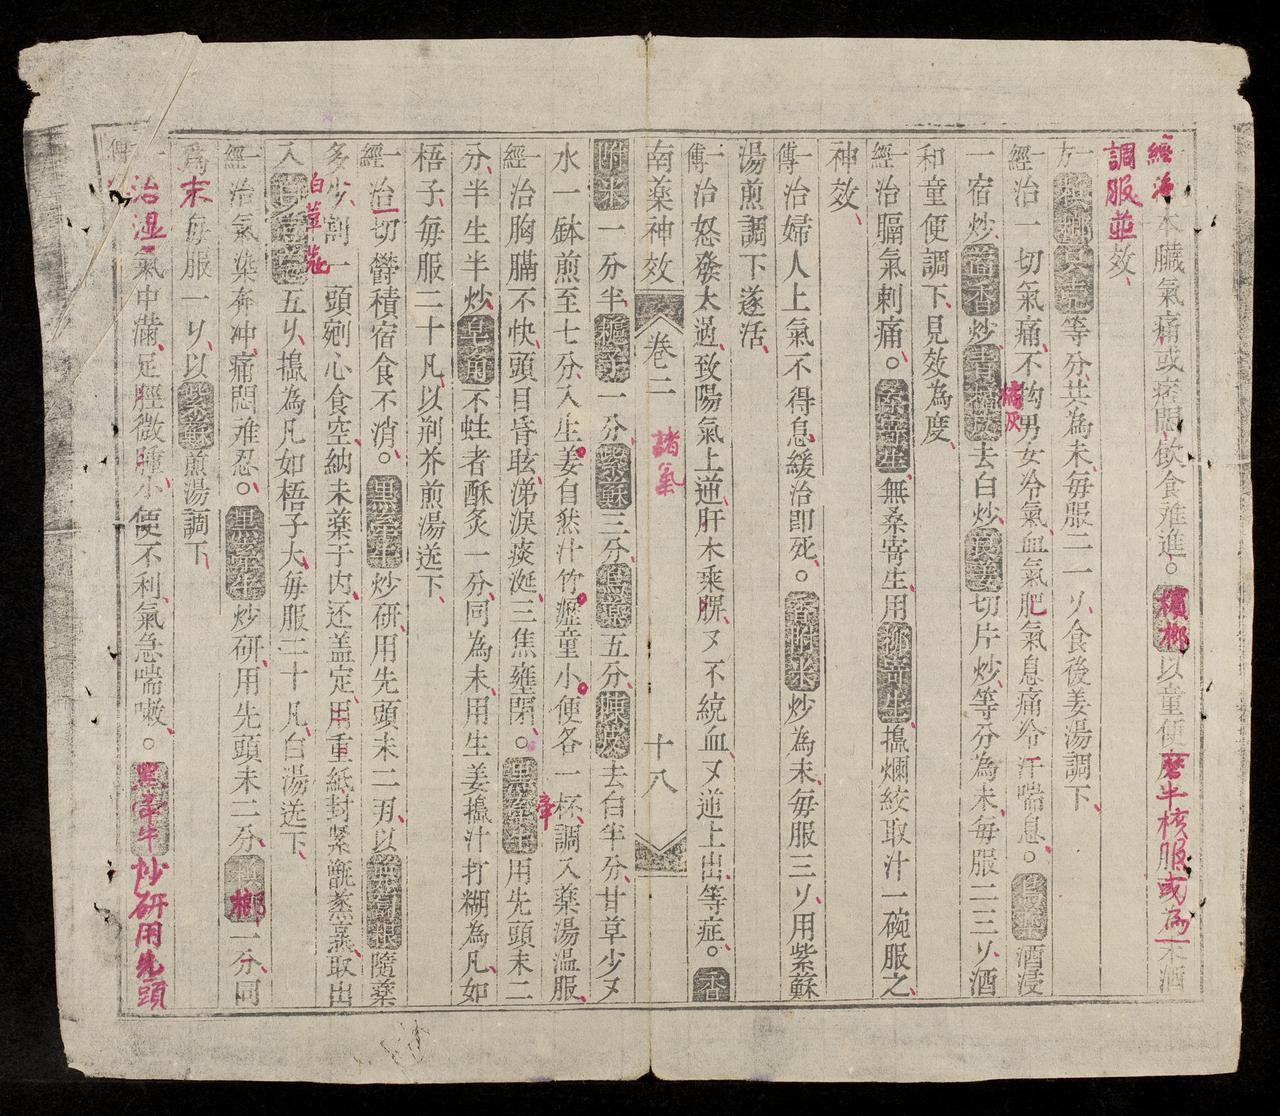 經治本臟氣痛或痞悶飲食难進。檳榔以童便磨半核服或為末酒
調服並效、
一方檳榔良薑等分共為末、每服二一刄、食後姜湯調下、
一經治一切氣痛、不拘男女冷氣、血氣肥氣息痛冷汗喘息。良薑酒浸
一宿炒、茴香炒、去白炒、良姜切片炒、等分為末、每服二三刄、酒
和童便調下、見效為度、
一經治膈氣刺痛。桑寄生無桑寄生、用柳寄生、搗爛絞取汁一碗服之、
神效、
一傳治婦人上氣不得息緩治即死。香附米炒為末、每服三刄、用紫蘇
湯煎調下遂活、
一傳治怒發太過、致陽氣上逆、肝木乘脾、又不統血、又逆上出、等症。香
南藥神效 卷二 諸氣 十八
附米一分半、梔子一分、紫蘇三分、烏藥五分、陳皮去白半分、甘草少又
水一鉢煎至七分、入生姜自然汁竹瀝童小便各一杯、調入藥湯温服、
一經治胸膈不快、頭目昏眩、涕淚痰涎、三焦壅閉、。黑牽牛用先頭末二
分、半生半炒、皂角不蛀者酥炙一分、同為末、用生姜搗汁打糊為凡、如
梧子、每服二十凡、以荊芥煎湯送下、
一經治一切欝積宿食不消、。黑牽牛炒研、用先頭末二刄、以隨藥
多少、割一頭剜心食空、納末藥于内、还盖定、用重紙封緊甑蒸蒸、取出
入白荳蔲五刄、搗為凡如梧子大、每服二十凡、白湯送下、
一經治氣染奔冲、痛悶难忍。黑牽牛炒研、用先頭末二分、檳榔一分、同
為末每服一刄、以紫蘇煎湯調下、
一傳治濕氣中滿、足脛微腫、小便不利、氣急喘嗽、。黑牽牛炒研用先頭